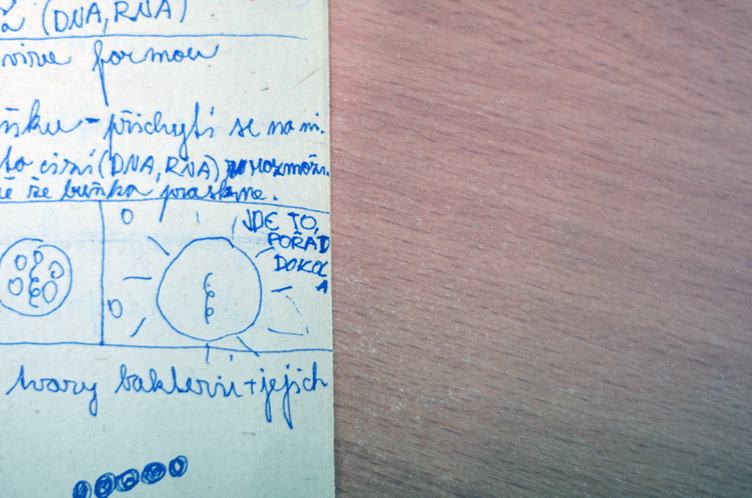 (DNA, RNA)
formou
přichytí se na ni.
to cizí (DNA, RNA) rozmnoži.
že buňka praskne.
JDE TO,
POŘÁD
DOKOL
A
tvary bakterií + jejich